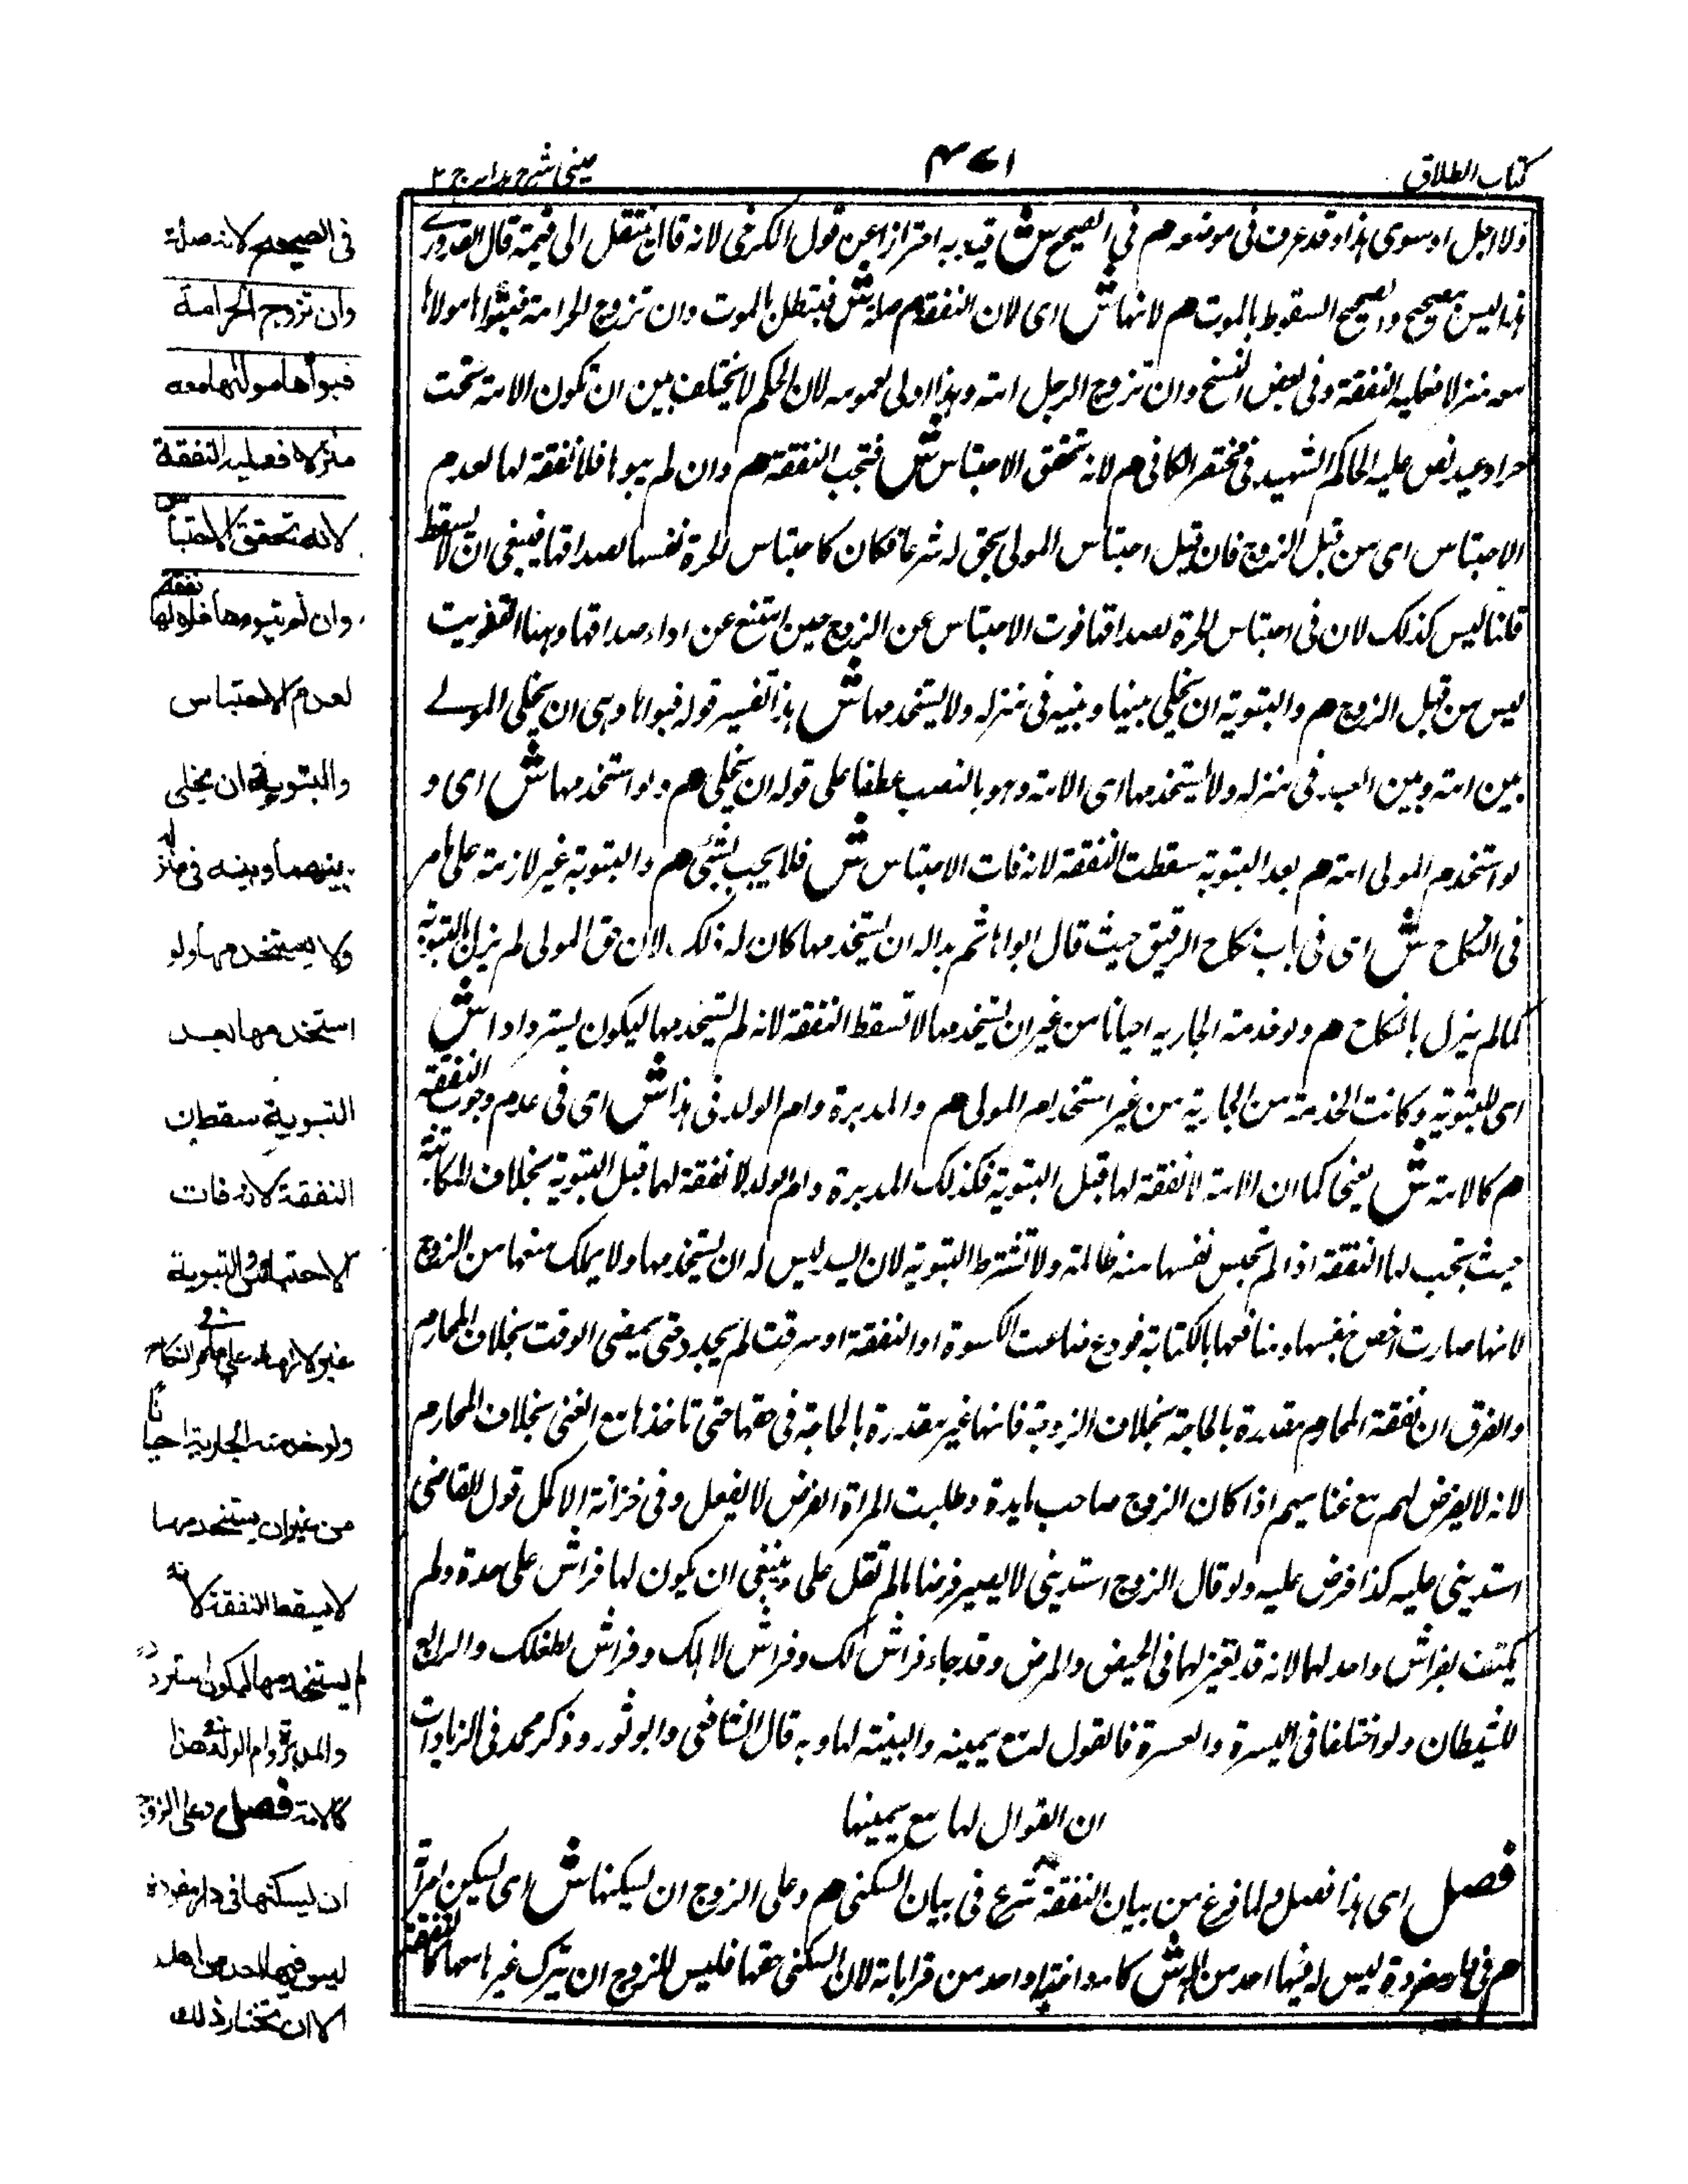 كتاب الطلاق
٤٧١
عينى شرح هدايه ج ٢
ولا اجل او سوى هذا وقد عرف فى موضعه هم في الصحيح ش قيد به احترازا عن قول الكرخى لانه قال ينتقل الى قيمته قال القدورے
هذا ليس بصحيح والصحيح السقوط بالموت هم لانها ش اى لان النفقة هم صلة ش فتبطل بالموت وان تزوج الحر امة فبوأها مولاها
معه منزلا فعليه النفقة وفى بعض النسخ وان تزوج الرجل امته وهذا اولى لعمومه لان الحكم لا يختلف بين ان تكون الامة تحت
حر او عبد نص عليه الحاكم الشهيد فى مختصر الكافى هم لانه تحقق الاحتباس ش فتجب النفقة هم وان لم يبوها فلا نفقة لها لعدم
الاحتباس اى من قبل الزوج فان قيل احتباس المولى بحق له شرعا فكان كاحتباس الحرة نفسها لصداقها فينبغى ان لا تسقط
قلنا ليس كذلك لان فى احتباس الحرة لصداقها فوت الاحتباس عن الزوج حين امتنع عن اداء صداقها وههنا التفويت
ليس من قبل الزوج هم والتبوية ان يخلى بينها وبينه فى منزله ولا يستخدمها ش هذا تفسير قوله فبوأها وهى ان يخلى المولے
بين امته وبين العبد فى منزله ولا يستخدمها اى الامة وهو بالنصب عطفا على قوله ان يخلى هم ولو استخدمها ش اى و
لو استخدم المولى امته هم بعد التبوية سقطت النفقة لانه فات الاحتباس ش فلا يجب شئ هم والتبوية غير لازمة على ما مر
فى النكاح ش اى فى باب نكاح الرقيق حيث قال بوأها ثم بدا له ان يستخدمها كان له ذلك لان حق المولى لم يزل بالتبوية
كما لم يزل بالنكاح هم ولو خدمته الجارية احيانا من غير ان يستخدمها لا تسقط النفقة لانه لم يستخدمها ليكون استردادا ش
اى للتبوية وكانت الخدمة من الجارية من غير استخدام المولى هم والمدبرة وام الولد فى هذا ش اى فى عدم وجوب النفقة
هم كالامة ش يعنى كما ان الامة لا نفقة لها قبل التبوية فكذلك المدبرة وام الولد لا نفقة لهما قبل التبوية بخلاف المكاتبة
حيث تجب لها النفقة اذا لم تحبس نفسها منه ظالمة ولا تشترط التبوية لان السيد ليس له ان يستخدمها ولا يملك منعها من الزوج
لانها صارت اخص بنفسها ومنافعها بالكتابة فروع ضاعت الكسوة او النفقة او سرقت لم يجدد حتى يمضى الوقت بخلاف المحارم
والفرق ان نفقة المحارم مقدرة بالحاجة بخلاف الزوجة فانها غير مقدرة بالحاجة فى حقها حتى تاخذها مع الغنى بخلاف المحارم
لانه لا يفرض لهم مع غناهم اذا كان الزوج صاحب مايدة وطلبت المراة الفرض لا يفعل وفى خزانة الاكمل قول القاضى
استدينى عليه كذا فرض عليه ولو قال الزوج استدينى لا يصير فرضا ما لم تقل على وينبغى ان يكون لها فراش على حدة ولم
يكتف بفراش واحد لهما لانه قد تعتزلها فى الحيض والمرض وقد جاء فراش لك وفراش لاهلك وفراش لطفلك والرابع
للشيطان ولو اختلفا فى اليسرة والعسرة فالقول له مع يمينه والبينة لها وبه قال الشافعى وابو ثور وذكر محمد فى الزيادات
ان القوال لها مع يمينها
فصل اى هذا فصل ولما فرغ من بيان النفقة شرع فى بيان السكنى هم وعلى الزوج ان يسكنها ش اى يسكن امرأته
هم فى دار مفردة ليس له فيها احد من اهله ش كامه واخته او احد من قراباته لان السكنى حقها فليس للزوج ان يشرك غيرها معها كالنفقة
فى الصحيح لانه صلة
وان تزوج الحر امة
فبوأها مولاها معه
منزلا فعليه النفقة
لانه تحقق الاحتباس
وان لم يبوءها فلا نفقة لها
لعدم الاحتباس
والتبوية ان يخلى
بينهما وبينه فى منزله
ولا يستخدمها ولو
استخدمها بعد
التبوية سقطت
النفقة لانه فات
الاحتباس والتبوية
غير لازمة على ما مر فى النكاح
ولو خدمته الجارية احيانا
من غير ان يستخدمها
لا يسقط النفقة لانه
لم يستخدمها ليكون استردادا
والمدبرة وام الولد فى هذا
كالامة فصل وعلى الزوج
ان يسكنها فى دار مفردة
ليس فيها احد من اهله
الا ان تختار ذلك